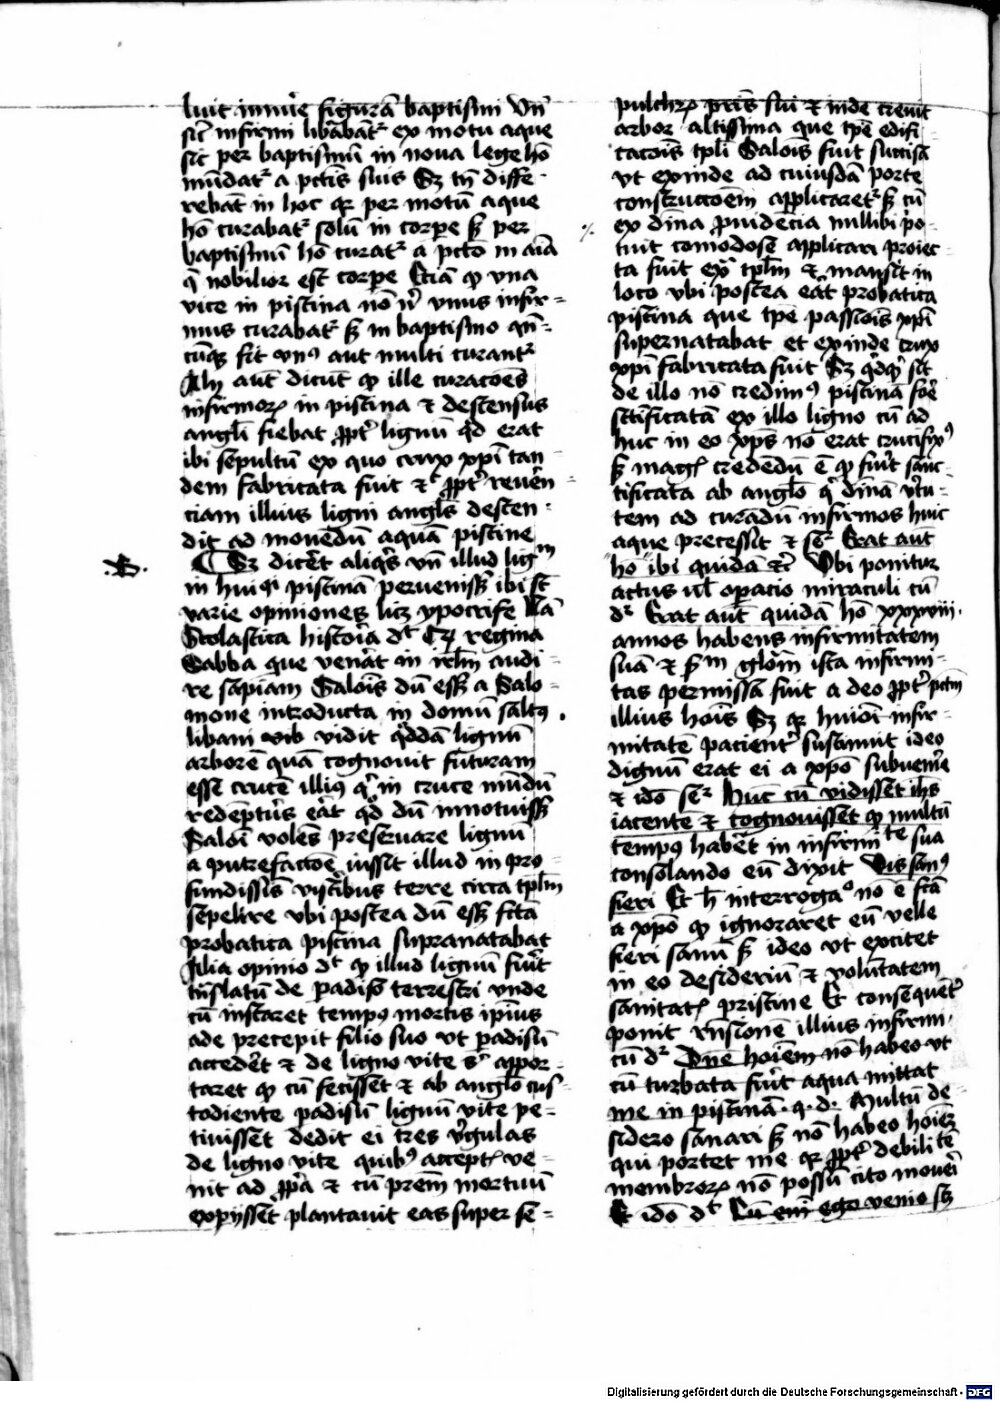 luit innuẽ figurã baptismi Vñ
sic infirmi libãbat᷑ ex motu aque
sic per baptismũ in noua lege hõ
mũdat᷑ a pctĩs suis Sꝫ tñ diffe-
rebãt in hoc qꝛ per motũ aque
hõ curabat᷑ solũ in corpe sꝫ per
baptismũ hõ curat᷑ a pctõ in aĩa
q̃ nobilior est corpe Eciã ꝙ vna
vice in piscina nõ nͥ vnus infir-
mus curabat᷑ sꝫ in baptismo qñ-
cũqꝫ fit vnꝰ aut multi curant᷑
Alij aut̃ dicũt ꝙ ille curacoẽs
infirmoꝝ in piscina ⁊ descensus
angl̃i fiebat ꝓpt̃ lignũ qd̃ erat
ibi sepultũ ex quo crux xpĩ tan
dem fabricata fuit ⁊ ꝓpt̃ reuẽn
ciam illius ligni angl̃s descen-
dit ad mouendũ aquã piscine
¶ Sꝫ dicẽt aliq̃s vñ illud lig
in huiꝰ piscinã peruenisꝫ ibi st̃
varie opiniones licꝫ ypocrife Nã
Scolastica histoĩa dᷓ ꝙ regina
Sabba que venãt in irl̃m audi-
re sapiam Saloĩs dũ esꝫ a Salo-
mone introducta in domũ saltꝰ
libani vib vidit q̃ddã lignũ
arborẽ quã cognouit futuram
esse crucẽ illiꝰ qͥ in cruce mũdũ
redẽpturꝰ eãt qd̃ dũ innotuisꝫ
Saloĩ volẽs preseruare lignũ
a putrefaccoẽ iussit illud in pro
fundissĩs viscibus terre circa tpl̃m
sepelire vbi postea dũ esꝫ fctã
probatica piscina supranatabat
Alia opinio dᷓ ꝙ illud lignũ fuĩt
tñslatũ de padiso terrestri vnde
cũ instaret tempꝰ mortis ipĩus
ade precepit filio suo vt padisũ
accedẽt ⁊ de ligno vite sͥ appor-
taret ꝙ cũ fecisset ⁊ ab angl̃o cus-
todiente padisũ lignũ vite pe-
tiuisset dedit ei tres v̓gulas
de ligno vite quibꝰ accept̃ ve-
nit ad ꝓp̃a ⁊ cũ prem̃ mortuũ
expijsset plantauit eas super se-
pulchꝝ pris̃ sui ⁊ inde creuit
arbor altissima que tpẽ edifi
cacoĩs tpl̃i Saloĩs fuit succisa
vt exinde ad cuiusdã porte
construccoẽm applicaret᷑ sꝫ cũ
ex diñа ꝓuidẽcia nullibi po-
tuit comodose applicari proiec-
ta fuit ext᷑ tpl̃m ⁊ mansit in
loco vbi postea eãt probatica
piscina que tpẽ passioĩs xpĩ
supernatabat et exinde crux
xpĩ fabricata fuit Sꝫ q̃dqͥ sit
de illo nõ credimꝰ piscinã foẽ
sc̃tificatã ex illo ligno cũ ad
huc in eo xps̃ nõ erat crucifixꝰ
sꝫ magꝭ credẽdũ ẽ ꝙ fuĩt sanc-
tificata ab angl̃o qͥ diñã v̓tu-
tem ad curãdũ infirmos huic
aque precessit ⁊ seͬ Erat aut̃
ho ibi quidã ⁊cͬ Vbi ponitur
actus ul̃ oꝑacio miraculi cũ
dͬ Erat aut̃ quidã hõ xxxviii.
annos habens infirmitatem
suã ⁊ sꝫm glo᷑m ista infirmi-
tas permissa fuit a deo ꝓpt̃ pctm̃
illius hoĩs Sꝫ qꝛ huiõi infir-
mitatẽ pacient̃ sustinuit ideo
dignũ erat ei a xpõ subuenĩe
⁊ idõ seͬ Hũc cũ vidisset ihs̃
iacente ⁊ cognouisset ꝙ multũ
tempꝰ habẽt in infirmite sua
consolando eũ dixit Vis sanꝰ
fieri Et h̃ interrogaͦ nõ ẽ fc̃ã
a xpõ ꝙ ignoraret eũ velle
fieri sanũ sꝫ ideo vt excitet
in eo desideriũ ⁊ volũtatem
sanitatꝭ pristine Et consequẽt̃
ponit rñsionẽ illius infirmi
cũ dͬ Dñe hoĩem nõ habeo vt
cũ turbata fuĩt aqua mittat
me in piscinã. q.d. Multũ de-
sidero sanari sꝫ nõ habeo hoĩeꝫ
qui portet me qꝛ ꝓpt̃ debilite
membroꝝ nõ possũ cito mouẽi
Et idõ dᷓ Cũ eĩ ego venio sꝫ